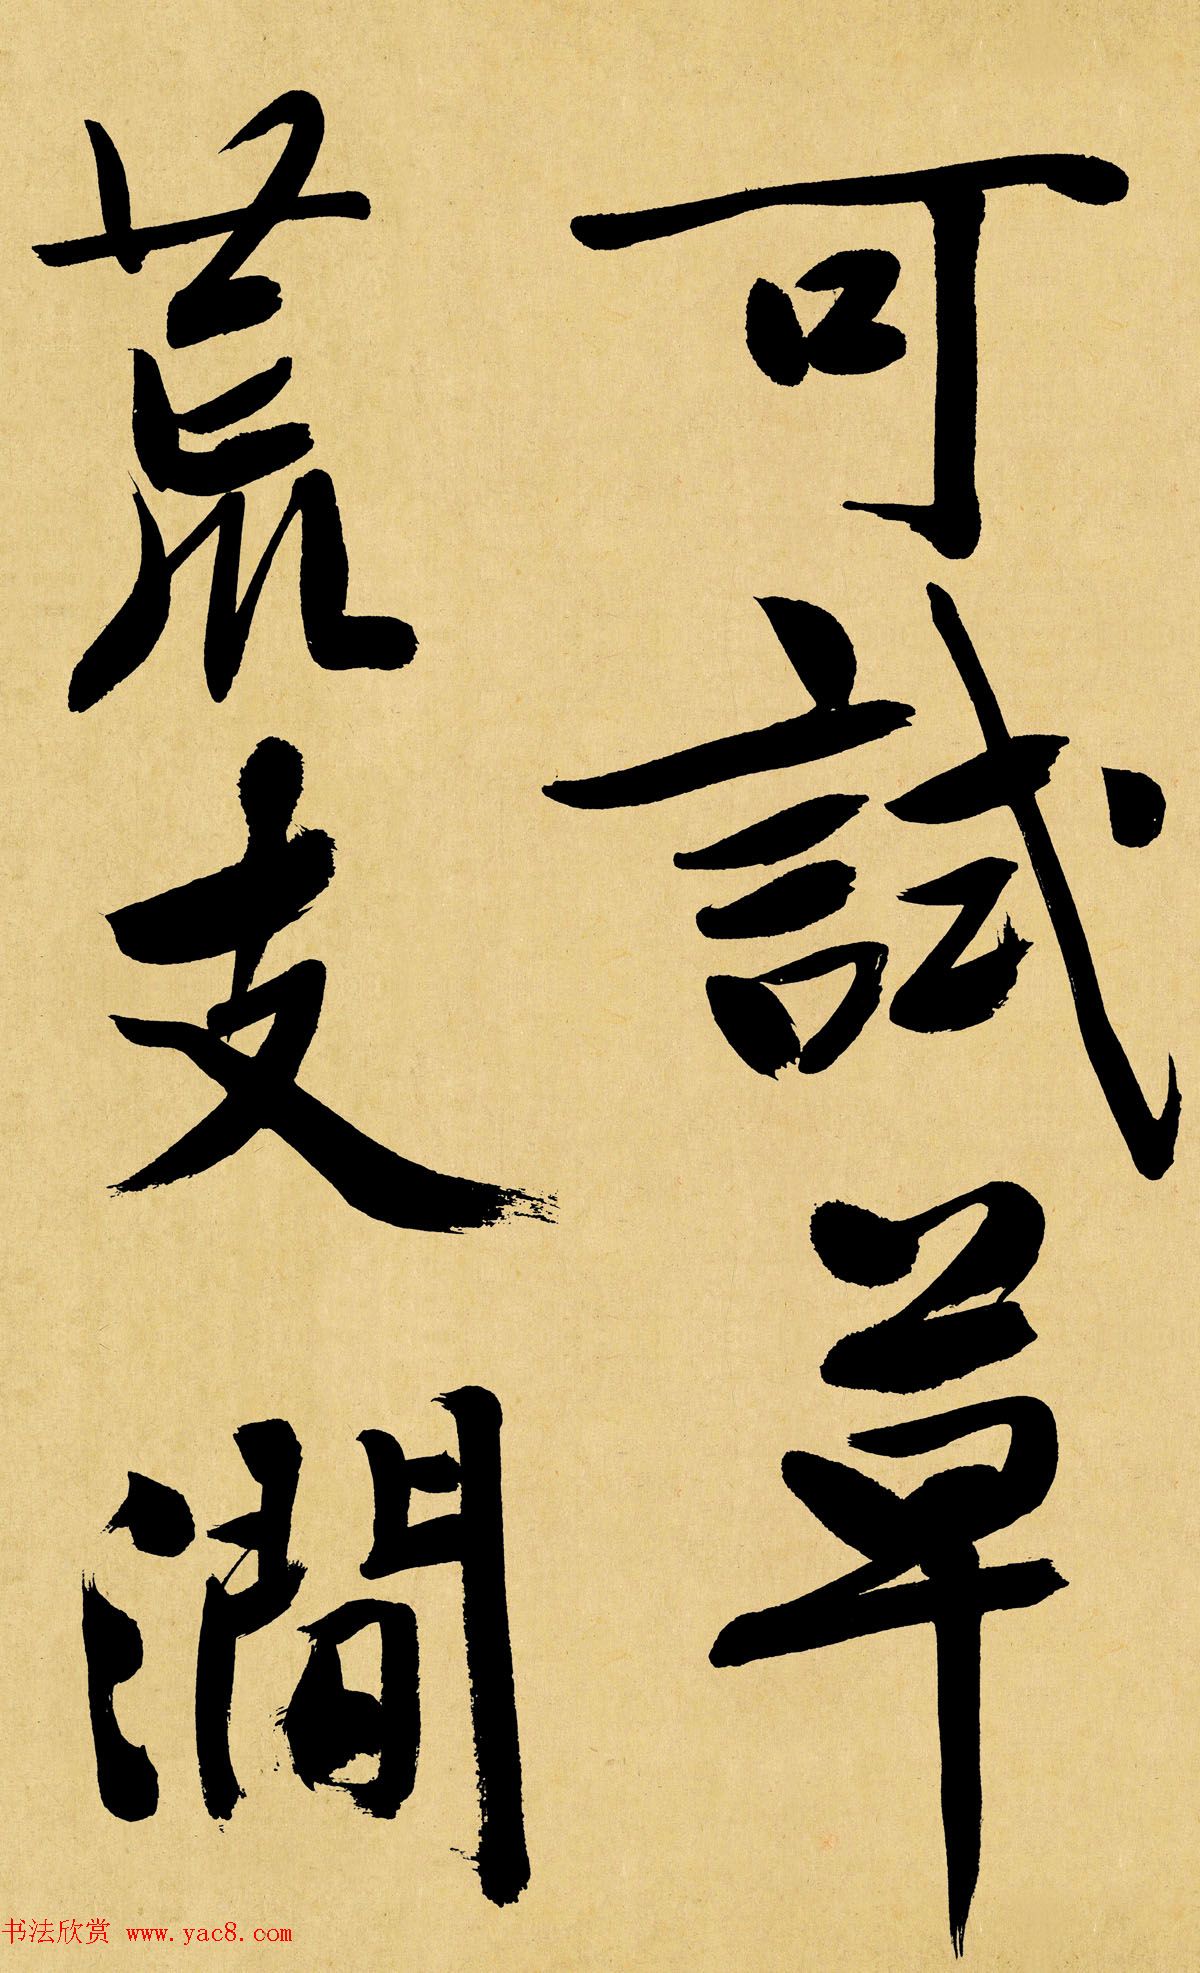 可試草
荒支澗
书法欣赏 www.yac8.com